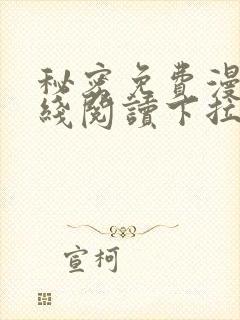 秘密免費漫
綫閱讀下拉
宣柯